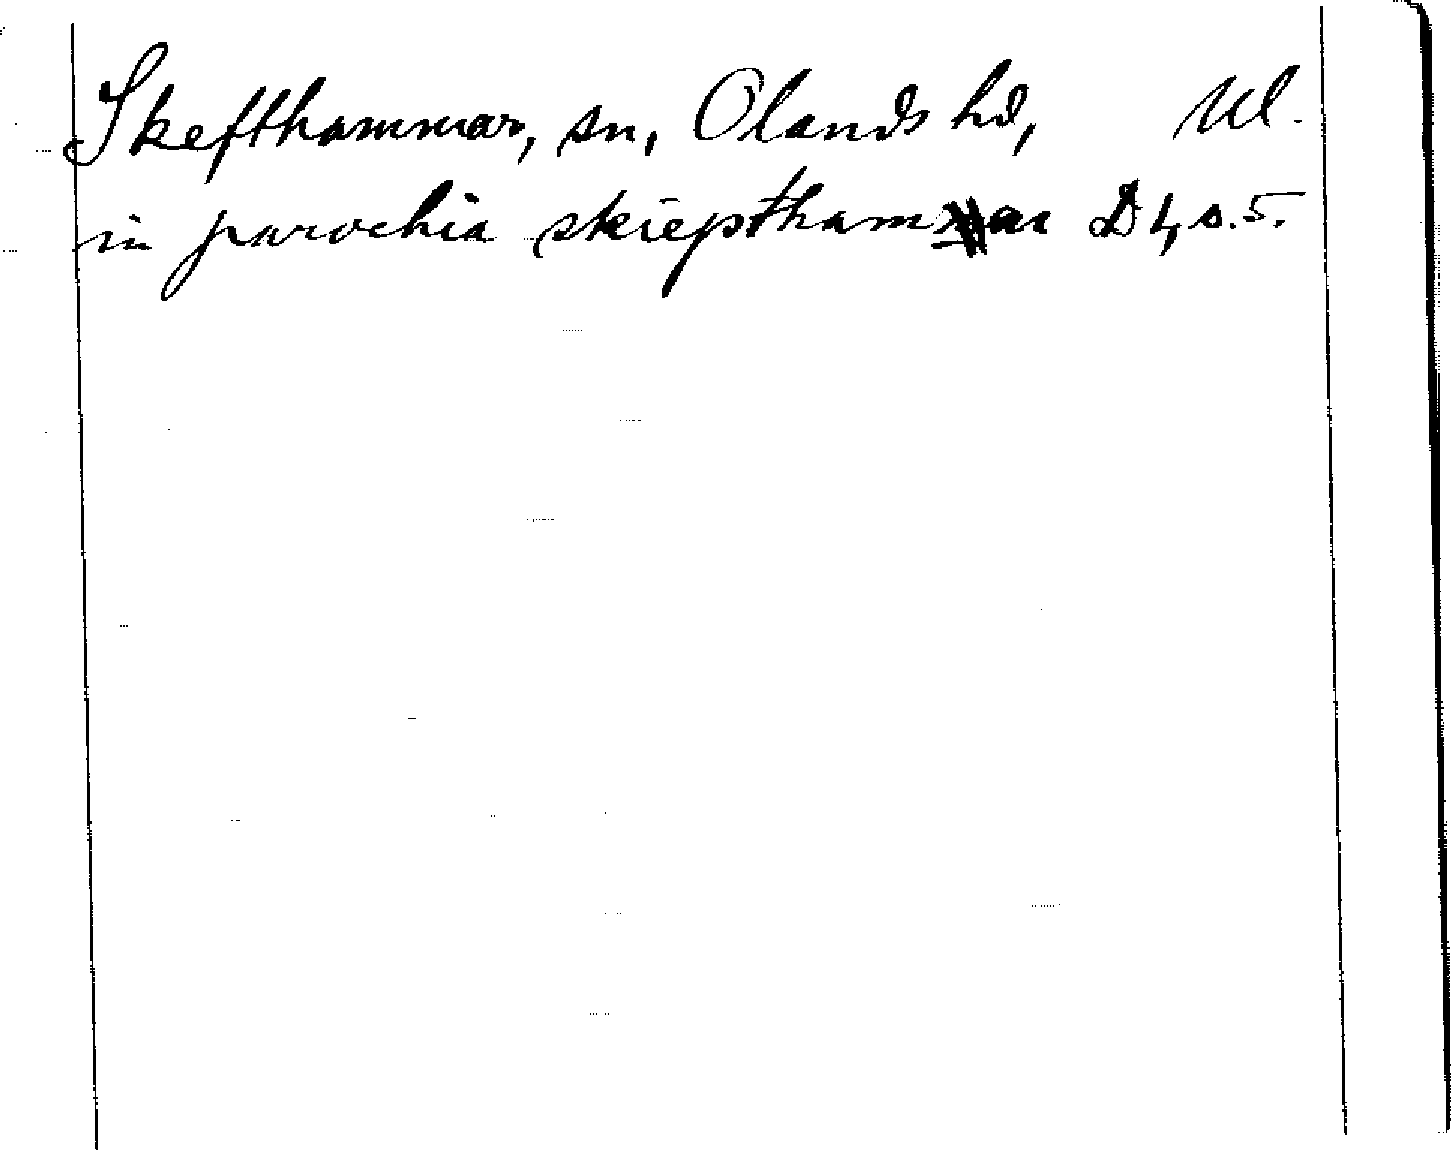 Skefthammar, sn, Olands hd, Ul.
in parochia skieptham ar D 4, s. 5.